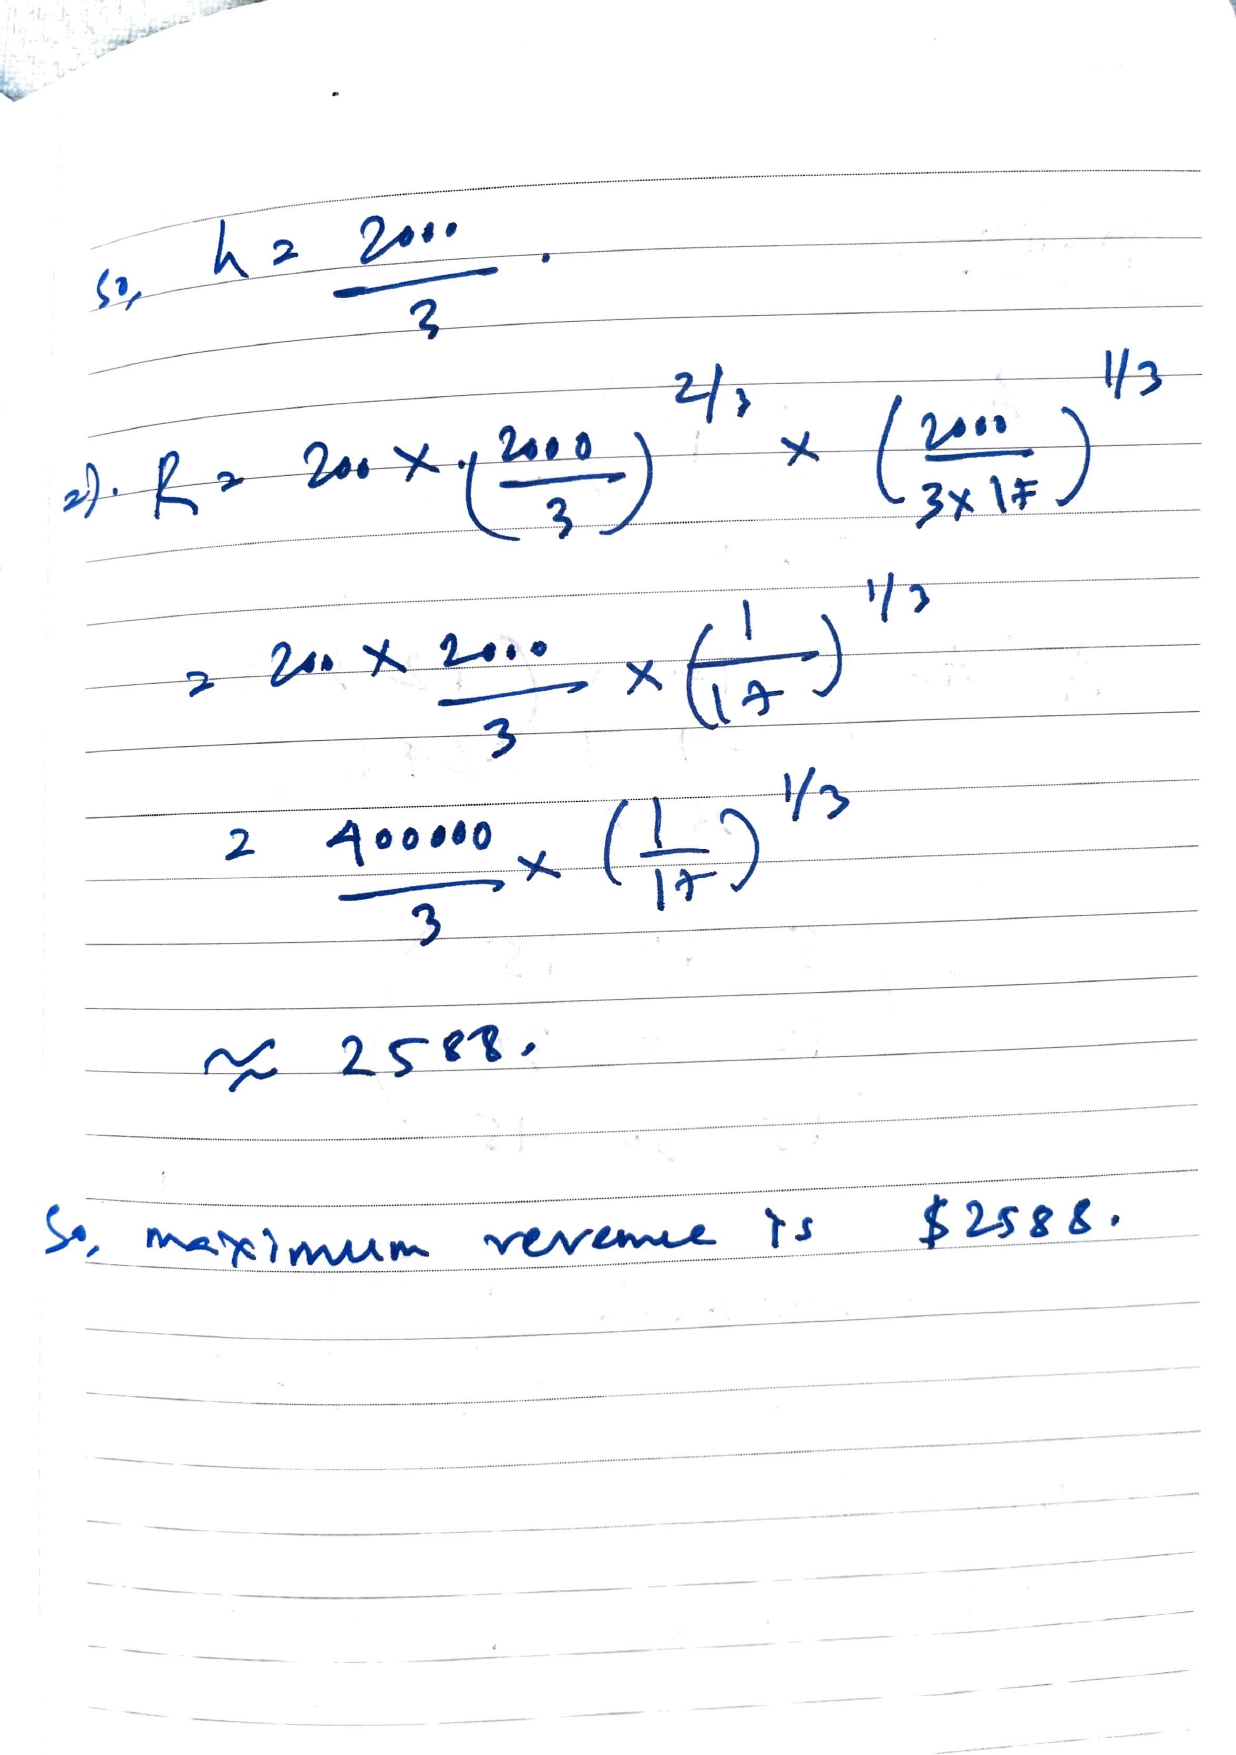 So, h = 2000/3 .
2). R = 200 × (2000/3)^2/3 × (2000/3×17)^1/3
= 200 × 2000/3 × (1/17)^1/3
= 400000/3 × (1/17)^1/3
≈ 2588.
So, maximum revenue is $2588.